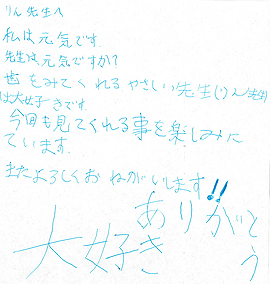 りん先生へ
私は元気です。
先生は元気ですか?
歯をみてくれるやさしい先生(りん先生)
は大好きです。
今回も見てくれる事を楽しみに
ています。
またよろしくおねがいします!!
ありがとう
大好き